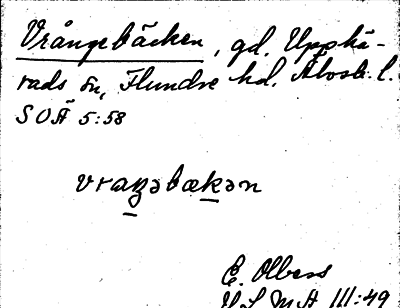 Vrångebäcken, gd. Upphä-
rads sn, Flundre hd. Älvsb. l.
SOÄ 5:58
vraŋəbækən
E. Olbers
VSMA III:49